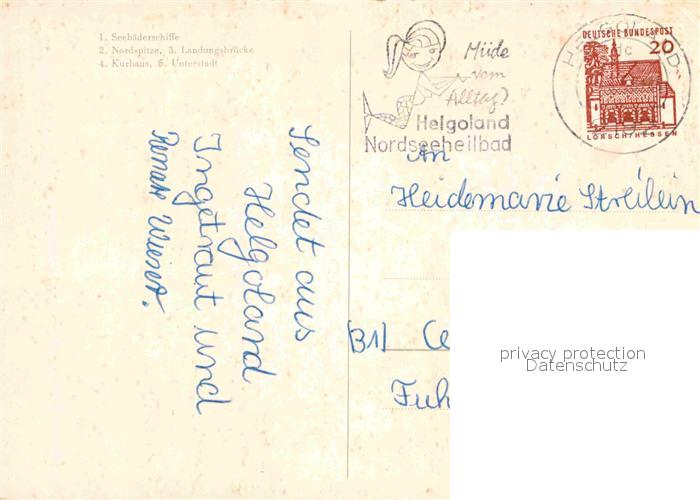 1. Seebäderschiffe
2. Nordspitze, 3. Landungsbrücke
4. Kurhaus, 5. Unterstadt
Müde
vom
Alltag?
Helgoland
Nordseeheilbad
DEUTSCHE BUNDESPOST
20
LORSCH/HESSEN
An
Heidemarie Streilein
(31) Ce
Fuh
privacy protection
Datenschutz
Sendet aus
Helgoland
Ingetraut und
Renate